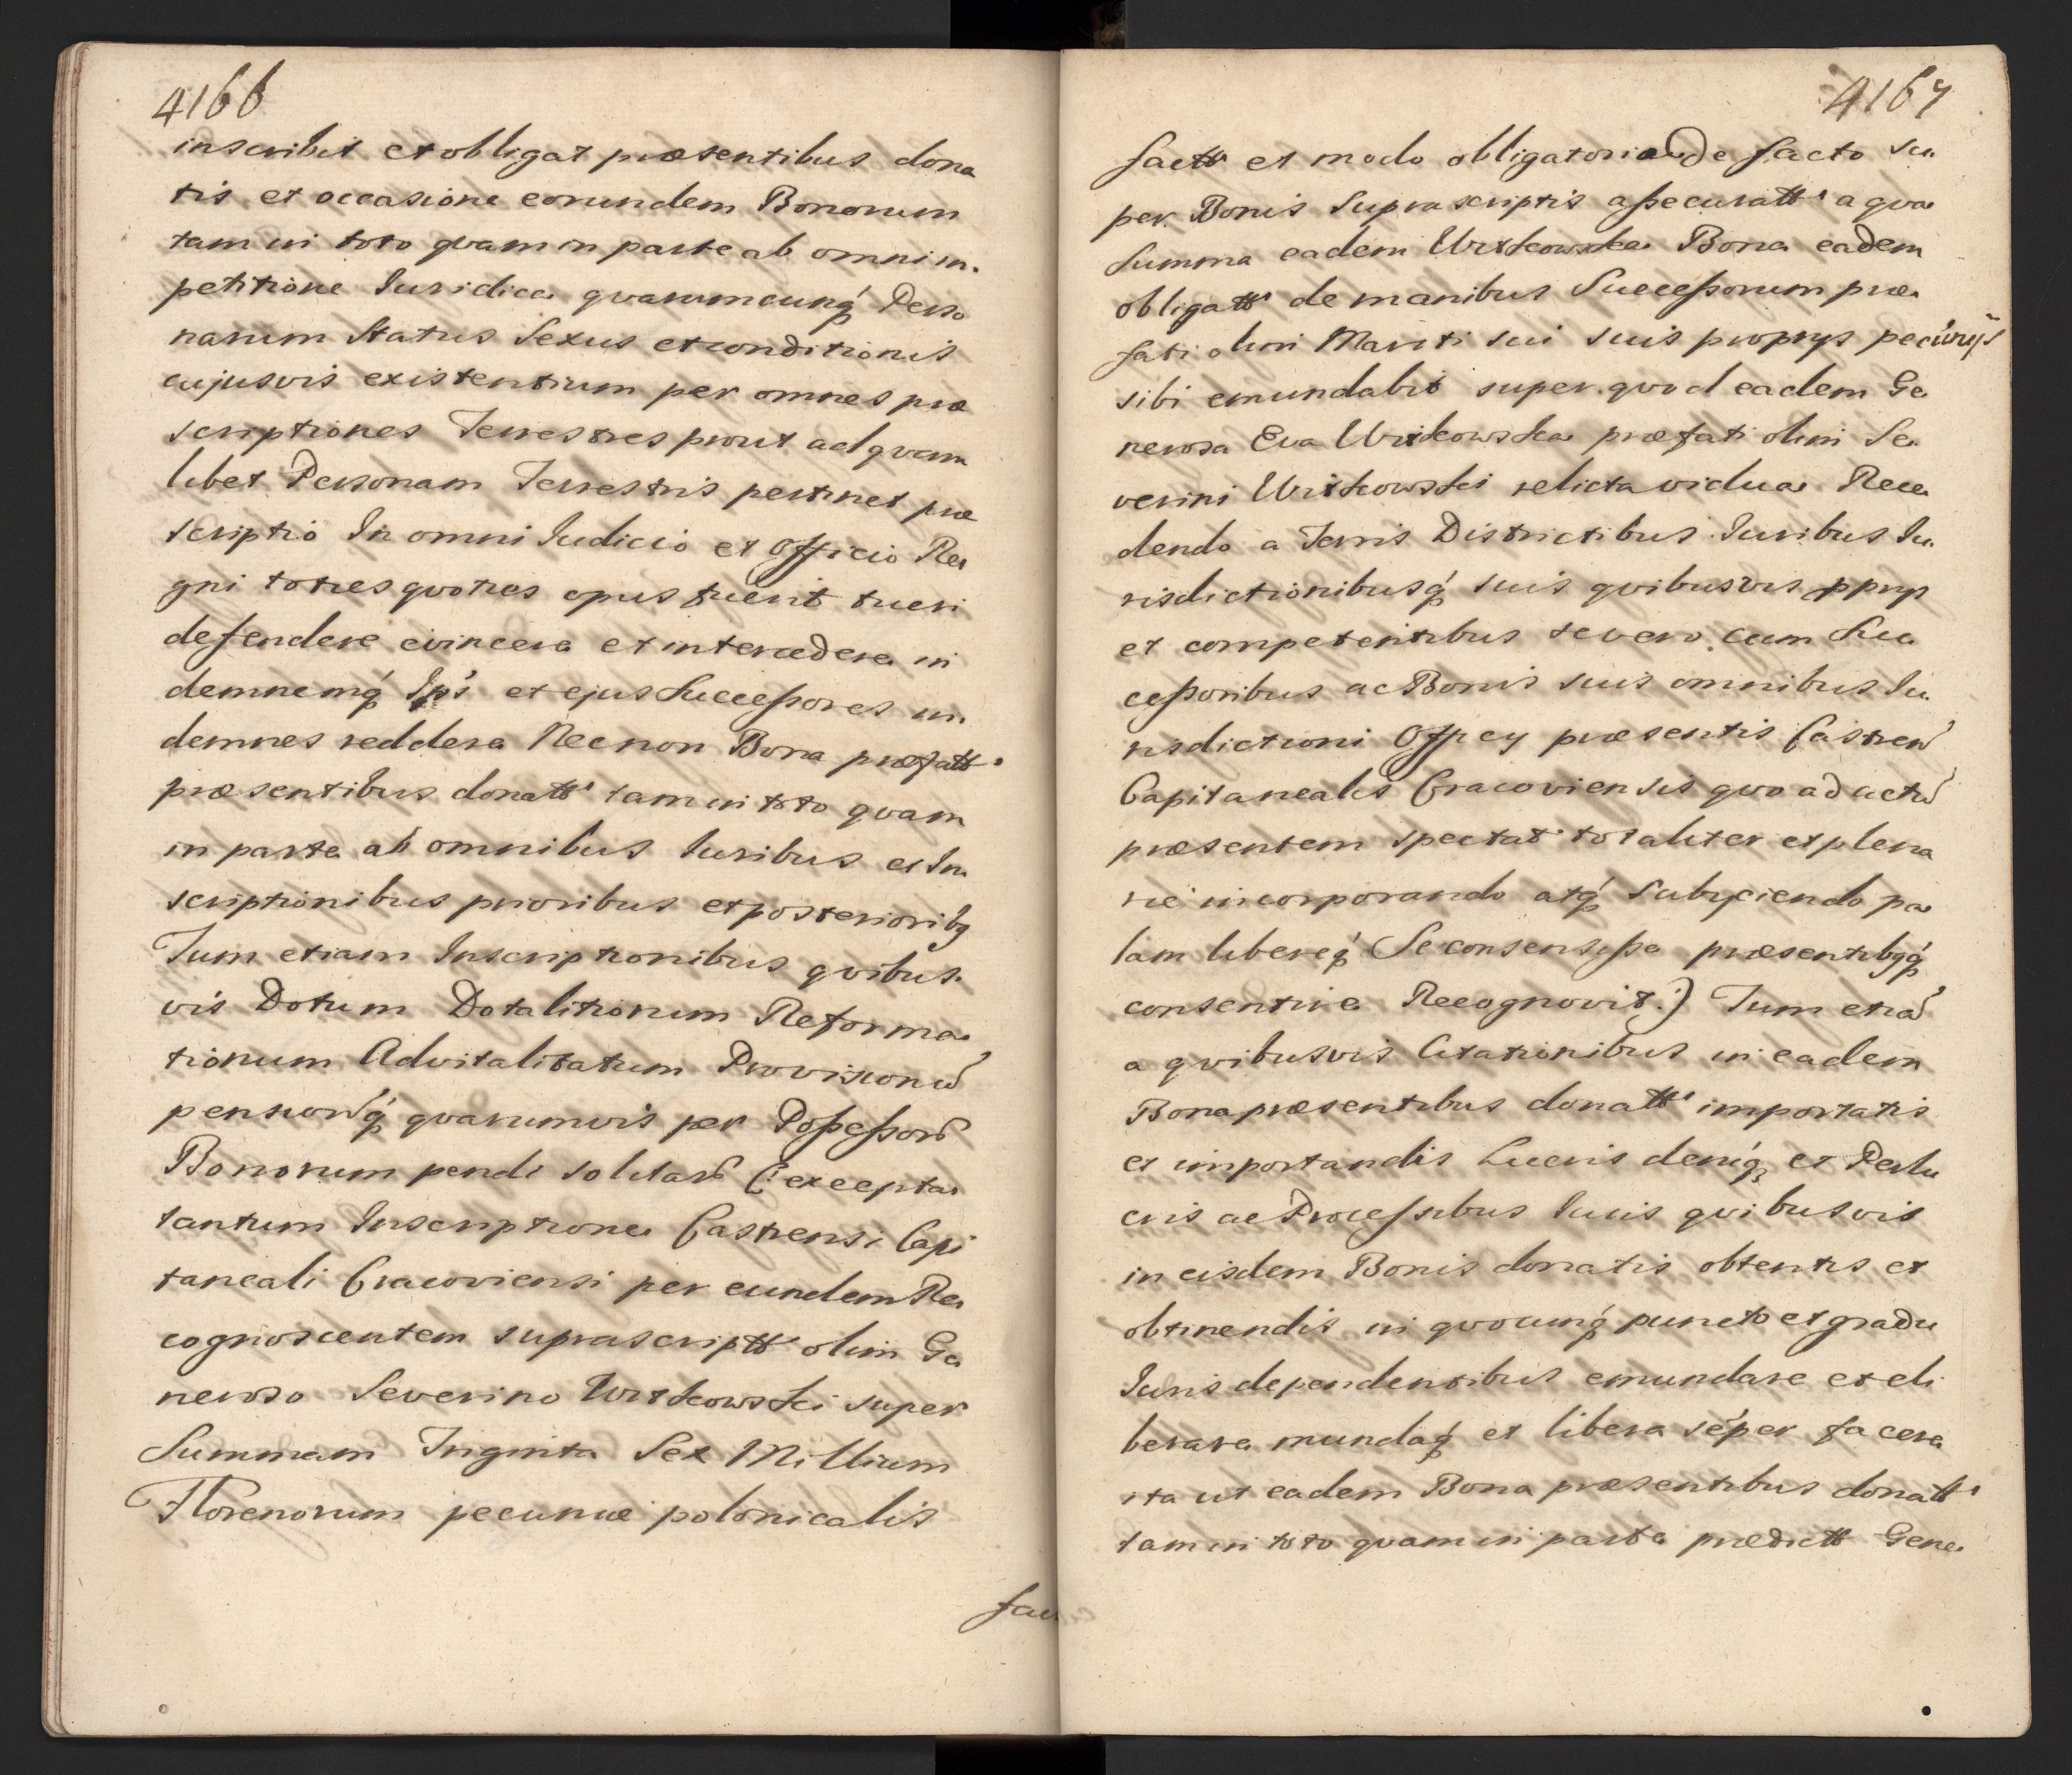 4166
inscribit et obligat præsentibus dona
tis et occasione eorundem Bonorum
tam in toto qvam in parte ab omni im
petitione Iuridica qvarumcunq́ Perso
narum Status Sexus et conditionis
cujusvis existentium per omnes præ
scriptiones Terrestres prout ad qvam
libet Personam Terrestris pertinet præ
scriptio In omni Iudicio et Officio Re
gni toties qvoties opus fuerit tueri
defendere evincere et intercedere in
demnemq́ Ips̃ et ejus Succeßores in
demnes reddere Necnon Bona præfatt'
præsentibus donatt' tam in toto qvam
in parte ab omnibus Iuribus et In
scriptionibus prioribus et posterioribq
Tum etiam Inscriptionibus qvibus
vis Dotum Dotalitiorum Reforma
tionum Advitalitatum Provisionũ
pensionũq́ qvarumvis per Poßeßorẽ
Bonorum pendi solitarũ (: excepta
tantum Inscriptione Castrensi Capi
taneali Cracoviensi per eundem Re
cognoscentem suprascriptt' olim Ge
neroso Severino Wrzkowski super
Summam Triginta Sex Millium
Florenorum pecuniæ polonicalis
4167
factt' et modo obligatorio de facto su
per Bonis Suprascriptis aßecuratt' a qva
Summa eadem Urzkowska Bona eadem
obligatt' de manibus Succeßorum præ
fati olim Mariti sui suis proprys pecunijs
sibi emundabit super qvod eadem Ge
nerosa Eva Urzkowska præfati olim Se
verini Urzkowski relicta vidua Rece
dendo a Terris Districtibus Iuribus Iu
risdictionibusq́ suis qvibusvis ppriys
et competentibus se vero cum Suc
ceßoribus ac Bonis suis omnibus Iu
risdictioni Officy præsentis Castreñ
Capitanealis Cracoviensis qvo ad actũ
præsentem spectat totaliter et plena
rie incorporando atq́ Subyciendo pa
lam libereq́ Se consensiße præsentibqq́
consentire Recognovit:) Tum etiã
a qvibusvis Citationibus in eadem
Bona præsentibus donatt' importatis
et importandis Lucris deniq́ et Perlu
cris ac Proceßibus Iuris qvibusvis
in eisdem Bonis donatis obtentis et
obtinendis in qvocunq́ puncto et gradu
Iuris dependentibus emundare et eli
berare mundaq́ et libera sẽper facere
ita ut eadem Bona præsentibus donatt'
tam in toto qvam in parte prædictt' Gene